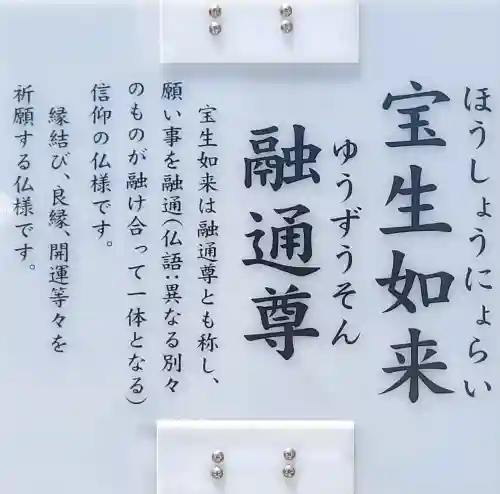 ほうしょうにょらい
宝生如来
ゆうずうそん
融通尊
宝生如来は融通尊とも称し、
願い事を融通(仏語:異なる別々
のものが融け合って一体となる)
信仰の仏様です。
縁結び、良縁、開運等々を
祈願する仏様です。